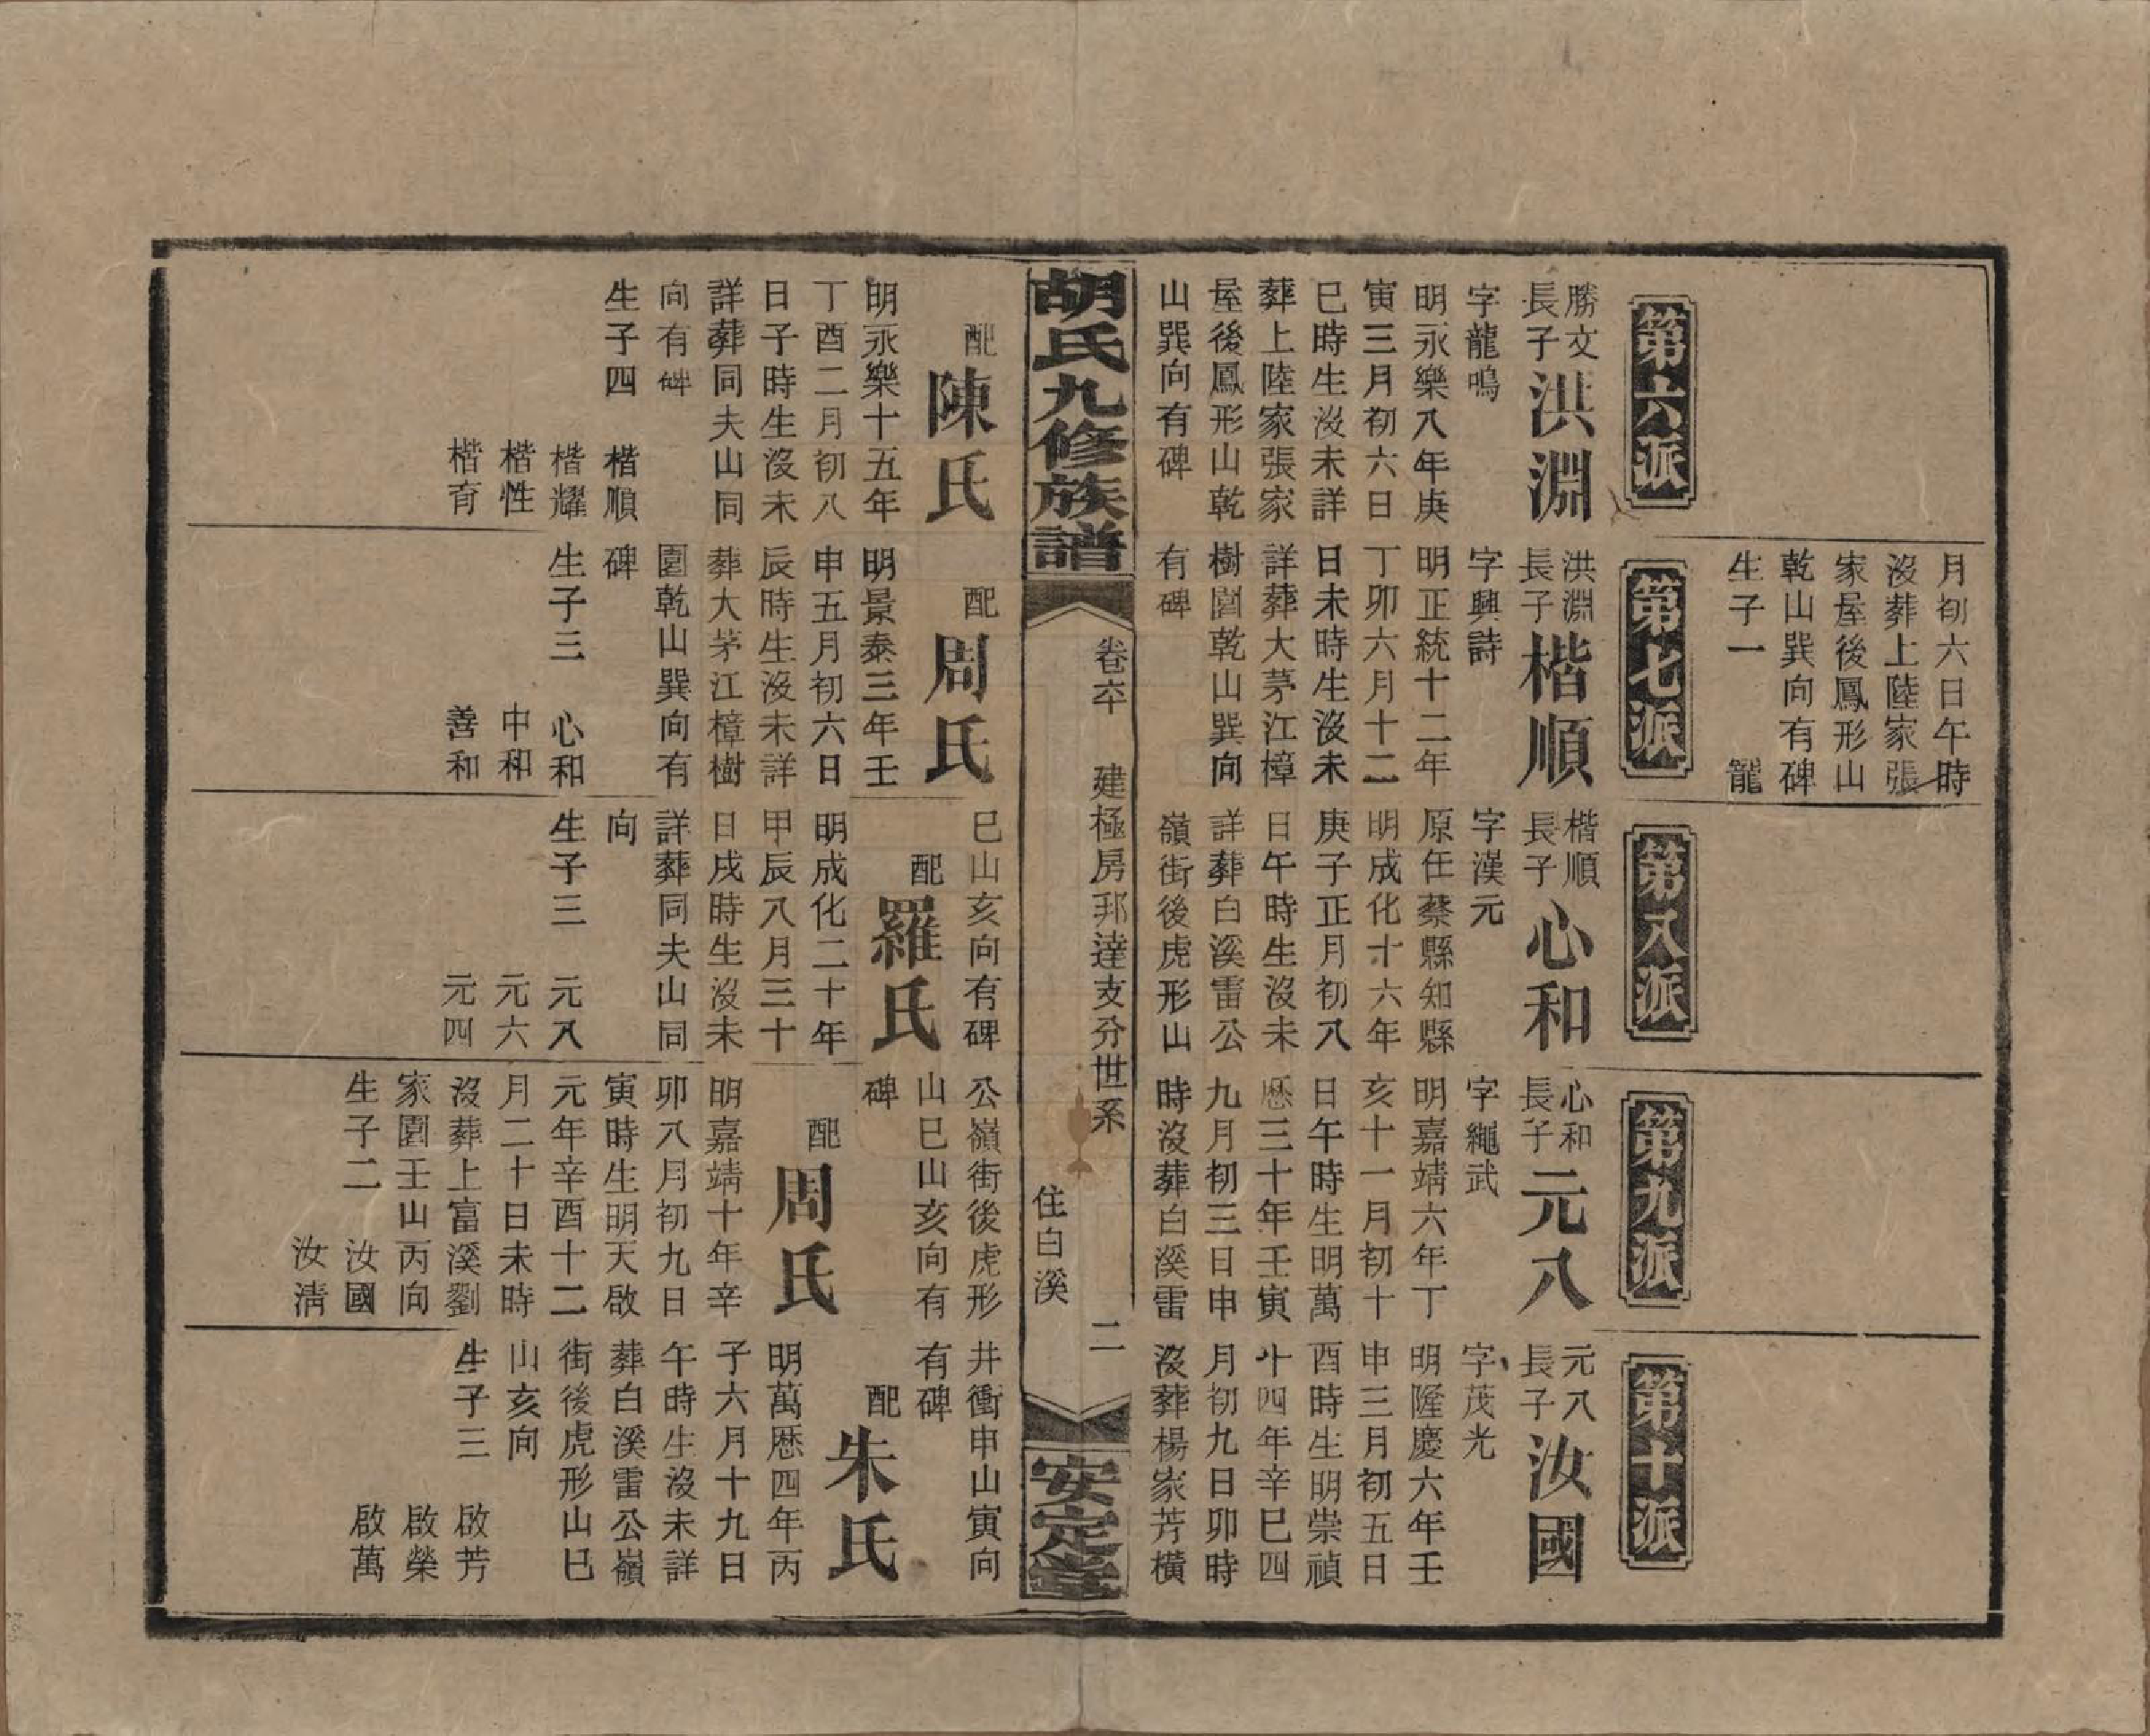 第六派
勝文
長子
洪淵
字龍鳴
明永樂八年庚
寅三月初六日
巳時生沒未詳
葬上陸家張家
屋後鳳形山乾
山巽向有碑
配
陳氏
明永樂十五年
丁酉二月初八
日子時生沒未
詳葬同夫山同
向有碑
生子四
楷順
楷耀
楷性
楷育
月初六日午時
沒葬上陸家張
家屋後鳳形山
乾山巽向有碑
生子一
龍
第七派
洪淵
長子
楷順
字興詩
明正統十二年
丁卯六月十二
日未時生沒未
詳葬大茅江樟
樹園乾山巽向
有碑
配
周氏
明景泰三年壬
申五月初六日
辰時生沒未詳
葬大茅江樟樹
園乾山巽向有
碑
生子三
心和
中和
善和
第八派
楷順
長子
心和
字漢元
原任蔡縣知縣
明成化十六年
庚子正月初八
日午時生沒未
詳葬白溪雷公
嶺街後虎形山
巳山亥向有碑
配
羅氏
明成化二十年
甲辰八月三十
日戌時生沒未
詳葬同夫山同
向
生子三
元八
元六
元四
第九派
心和
長子
元八
字繩武
明嘉靖六年丁
亥十一月初十
日午時生明萬
歷三十年壬寅
九月初三日申
時沒葬白溪雷
公嶺街後虎形
山巳山亥向有
碑
配
周氏
明嘉靖十年辛
卯八月初九日
寅時生明天啟
元年辛酉十二
月二十日未時
沒葬上富溪劉
家園壬山丙向
生子二
汝國
汝清
第十派
元八
長子
汝國
字茂光
明隆慶六年壬
申三月初五日
酉時生明崇禎
十四年辛巳四
月初九日卯時
沒葬楊家芳橫
井衝申山寅向
有碑
配
朱氏
明萬歷四年丙
子六月十九日
午時生沒未詳
葬白溪雷公嶺
街後虎形山巳
山亥向
生子三
啟芳
啟榮
啟萬
胡氏九修族譜
卷六十
建極房邦達支分世系
住白溪
二
安定堂